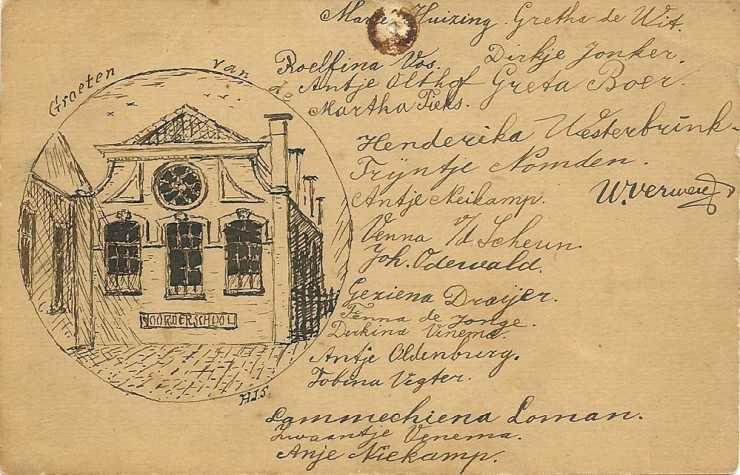 Marie Huizing. Gretha de Wit.
Groeten van de
Roelfina Vos. Dirkje Jonker.
Antje Olthof Greta Boer.
Martha Fieks.
Henderika Westerbrink.
Trijntje Nomden.
Antje Meikamp. W. Verweij
Venna v/d Scheun.
Joh. Odewald.
Geziena Draijer.
Fenna de Jonge.
Derkina Venema.
NOORDERSCHOOL
Antje Oldenburg.
Tobina Vegter.
H.J.S.
Lammechiena Loman.
Zwaantje Venema.
Anje Niekamp.